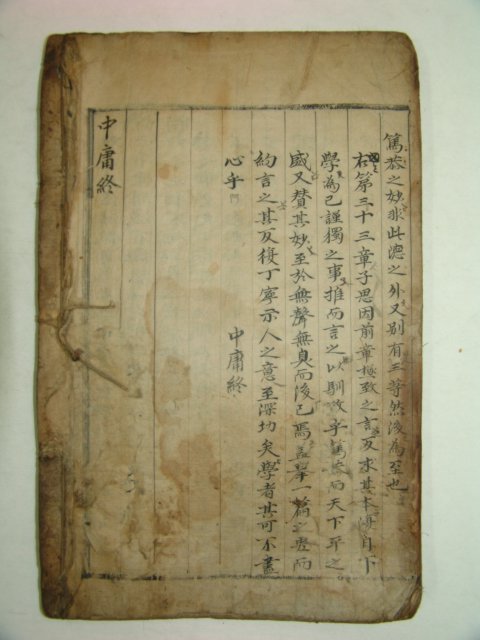 篤恭之妙非此德之外又別有三等然後為至也
右第三十三章子思因前章極致之言反求其本復自下
學為己謹獨之事推而言之以馴致乎篤恭而天下平之
盛又贊其妙至於無聲無臭而後已焉盖擧一篇之要而
約言之其反復丁寧示人之意至深切矣學者其可不盡
心乎
中庸終
中庸終